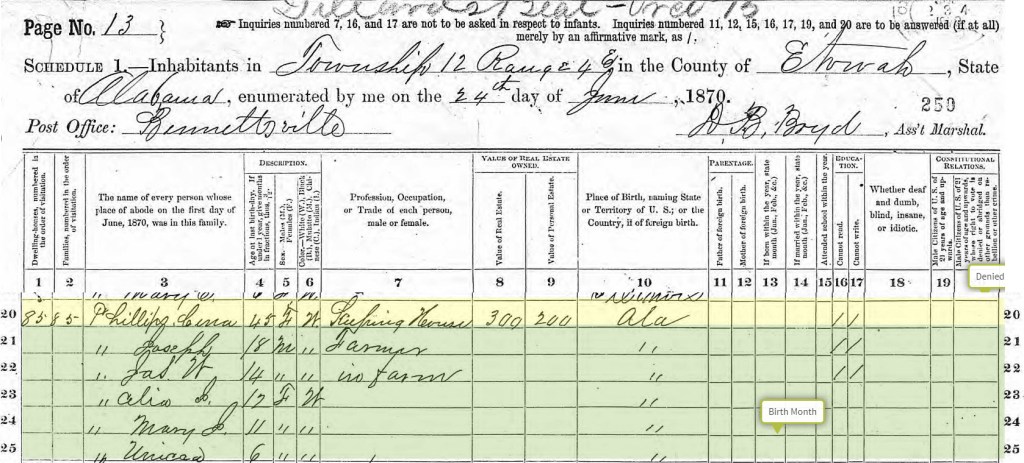 Dillard's Beat
Page No. 13 } Inquiries numbered 7, 16, and 17 are not to be asked in respect to infants. Inquiries numbered 11, 12, 15, 16, 17, 19, and 20 are to be answered (if at all)
merely by an affirmative mark, as /.
SCHEDULE 1.—Inhabitants in Township 12 Range 4 E, in the County of Etowah, State
of Alabama, enumerated by me on the 24th day of June, 1870.
259
Post Office: Bennettsville D. B. Boyd, Ass't Marshal.
Dwelling-houses, numbered in the order of visitation.
Families, numbered in the order of visitation.
The name of every person whose place of abode on the first day of June, 1870, was in this family.
DESCRIPTION.
Age at last birth-day. If under 1 year, give months in fractions, thus, 3/12.
Sex.—Males (M.), Females (F.)
Color.—White (W.), Black (B.), Mulatto (M.), Chinese (C.), Indian (I.)
Profession, Occupation, or Trade of each person, male or female.
VALUE OF REAL ESTATE OWNED.
Value of Real Estate.
Value of Personal Estate.
Place of Birth, naming State or Territory of U. S.; or the Country, if of foreign birth.
PARENTAGE.
Father of foreign birth.
Mother of foreign birth.
If born within the year, state month (Jan., Feb., &c.)
If married within the year, state month (Jan., Feb., &c.)
Attended school within the year.
EDUCATION.
Cannot read.
Cannot write.
Whether deaf and dumb, blind, insane, or idiotic.
CONSTITUTIONAL RELATIONS.
Male Citizens of U. S. of 21 years of age and upwards.
Male Citizens of U. S. of 21 years of age and upwards, whose right to vote is denied or abridged on other grounds than rebellion or other crime.
Denied
1 2 3 4 5 6 7 8 9 10 11 12 13 14 15 16 17 18 19
20 85 85 Phillips, 45 F W Keeping House 300 200 Ala / / 20
21 " Joseph 18 M " Farmer " / / 21
22 " Jas. W 14 " " on farm " / / 22
23 " 12 F W " 23
24 " Mary 11 " " " 24
Birth Month
25 " 6 " " " 25